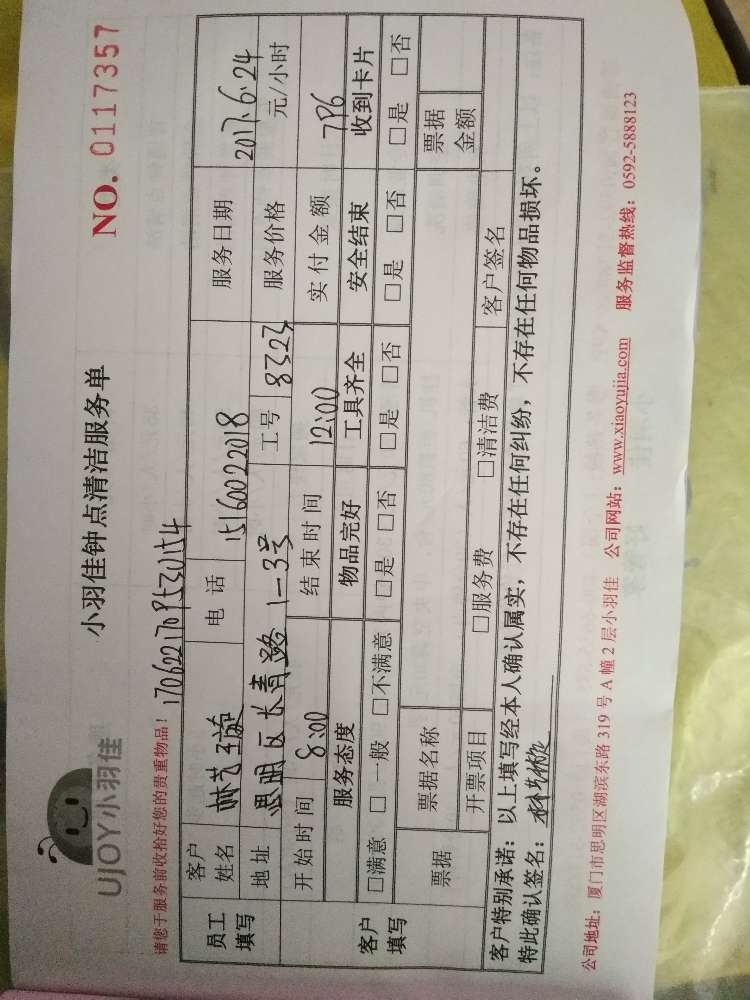 UJOY小羽佳
小羽佳钟点清洁服务单
NO. 0117357
请您于服务前收拾好您的贵重物品！
员工填写 客户姓名 林艺 电话 15160022018 服务日期 2017.6.24
地址 思明区长青路1-3号 工号 8323 服务价格 元/小时
开始时间 8:00 结束时间 12:00 实付金额
客户填写 服务态度 物品完好 工具齐全 安全结束 收到卡片
□满意 □一般 □不满意 □是 □否 □是 □否 □是 □否 □是 □否
票据 票据名称 票据金额
开票项目 □服务费 □清洁费 客户签名
客户特别承诺：以上填写经本人确认属实，不存在任何纠纷，不存在任何物品损坏。
特此确认签名：林艺
公司地址：厦门市思明区湖滨东路 319 号 A 幢 2 层小羽佳 公司网站：www.xiaoyujia.com 服务监督热线：0592-5888123